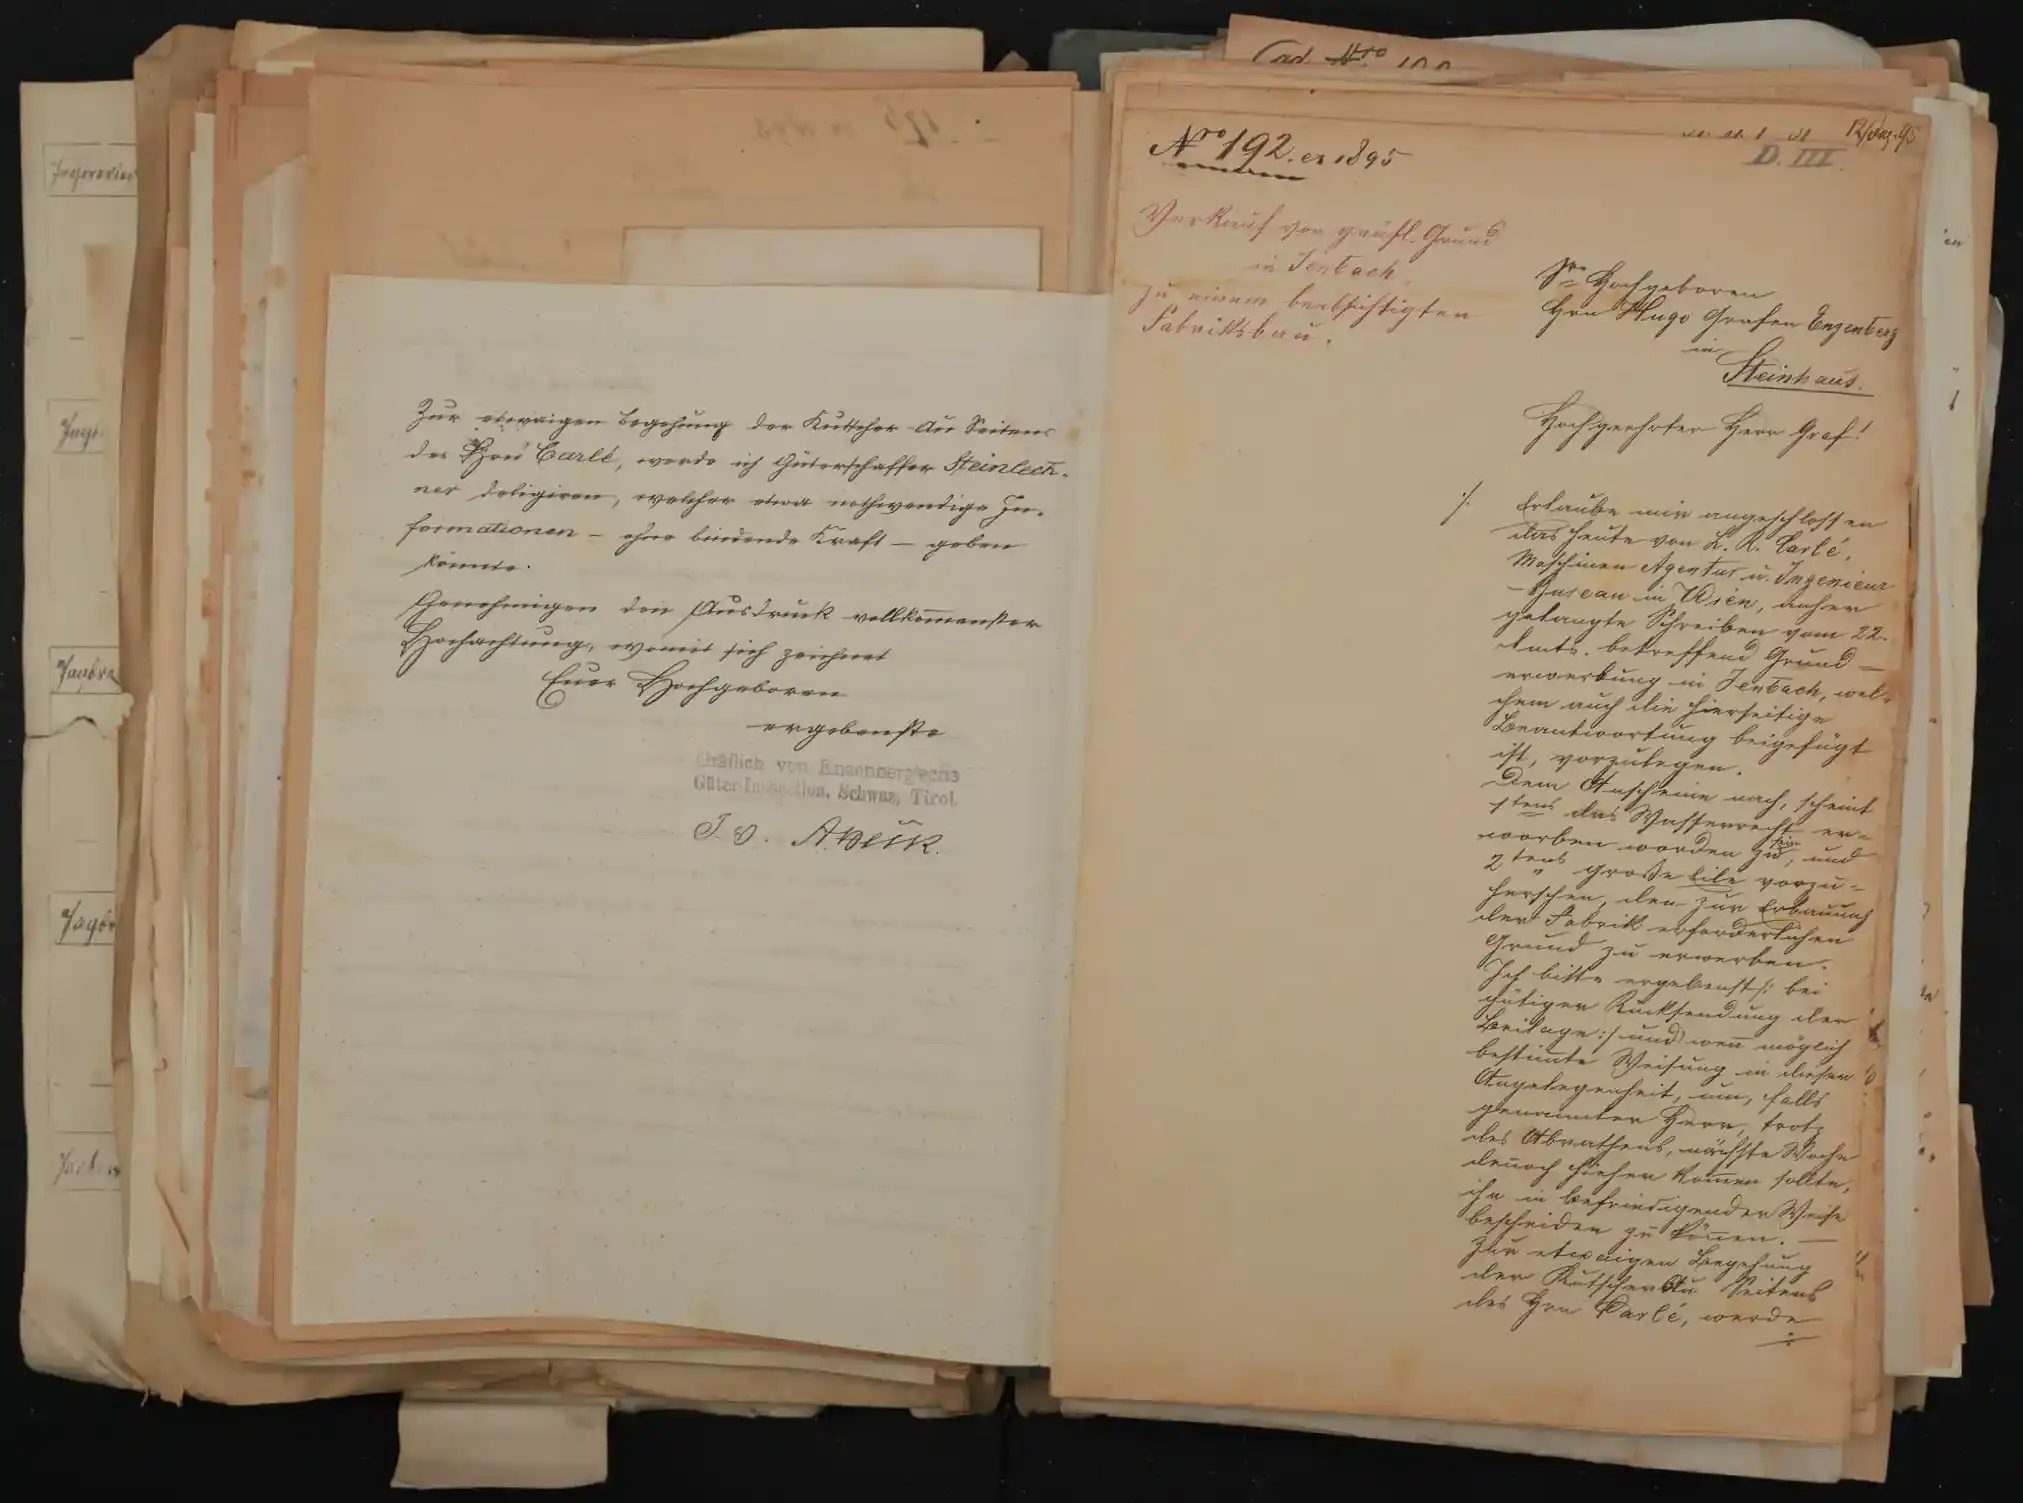 Jagdrevier
Jagd
Jagdre
Jagdr
Zur etwaigen Begehung der Kutscher-Au Seitens
des Hrn Carlé, werde ich Güterschaffer Steinlech-
ner deligiren, welcher etwa nothwendige In-
formationen – ohne bindende Kraft – geben
könnte.
Genehmigen den Ausdruck vollkom̄enster
Hochachtung, womit sich zeichnet
Euer Hochgeboren
ergebenste
Gräflich von Enzenberg'sche
Güter-Inspection, Schwaz, Tirol.
I. V.
Cad. Nro 100
Nro 192. ex 1895
12/Dez. 95
D. III.
Verkauf von gräfl. Grund
in Jenbach,
zu einem beabsichtigten
Fabriksbau.
Sr Hochgeboren
Hrn Hugo Grafen Enzenberg
in
Steinhaus.
Hochgeehrter Herr Graf!
./.
Erlaube mir angeschlossen
das heute von L. R. Carlé,
Maschinen Agentur u. Ingenieur
-Bureau in Wien, anher
gelangte Schreiben vom 22.
dmts. betreffend Grund-
erwerbung in Jenbach, wel-
chem auch die hierseitige
Beantwortung beigefügt
ist, vorzulegen.
Dem Anscheine nach, scheint
1tens das Wasserrecht er-
worben worden zu sein, und
2tens große Eile vorzu-
herschen, den zur Erbauung
der Fabrik erforderlichen
Grund zu erwerben.
Ich bitte ergebenst /: bei
gütiger Rücksendung der
Beilage :/ und wen̄ möglich
bestim̄te Weisung in dieser
Angelegenheit, um, falls
genannter Herr, trotz
des Abrathens, nächste Woche
den̄och hieher kom̄en sollte,
ihn in befriedigender Weise
bescheiden zu kön̄en. —
Zur etwaigen Begehung
der Kutscher Au Seitens
des Hrn Carlé, werde
./.